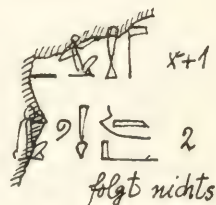 x+1
2
folgt nichts